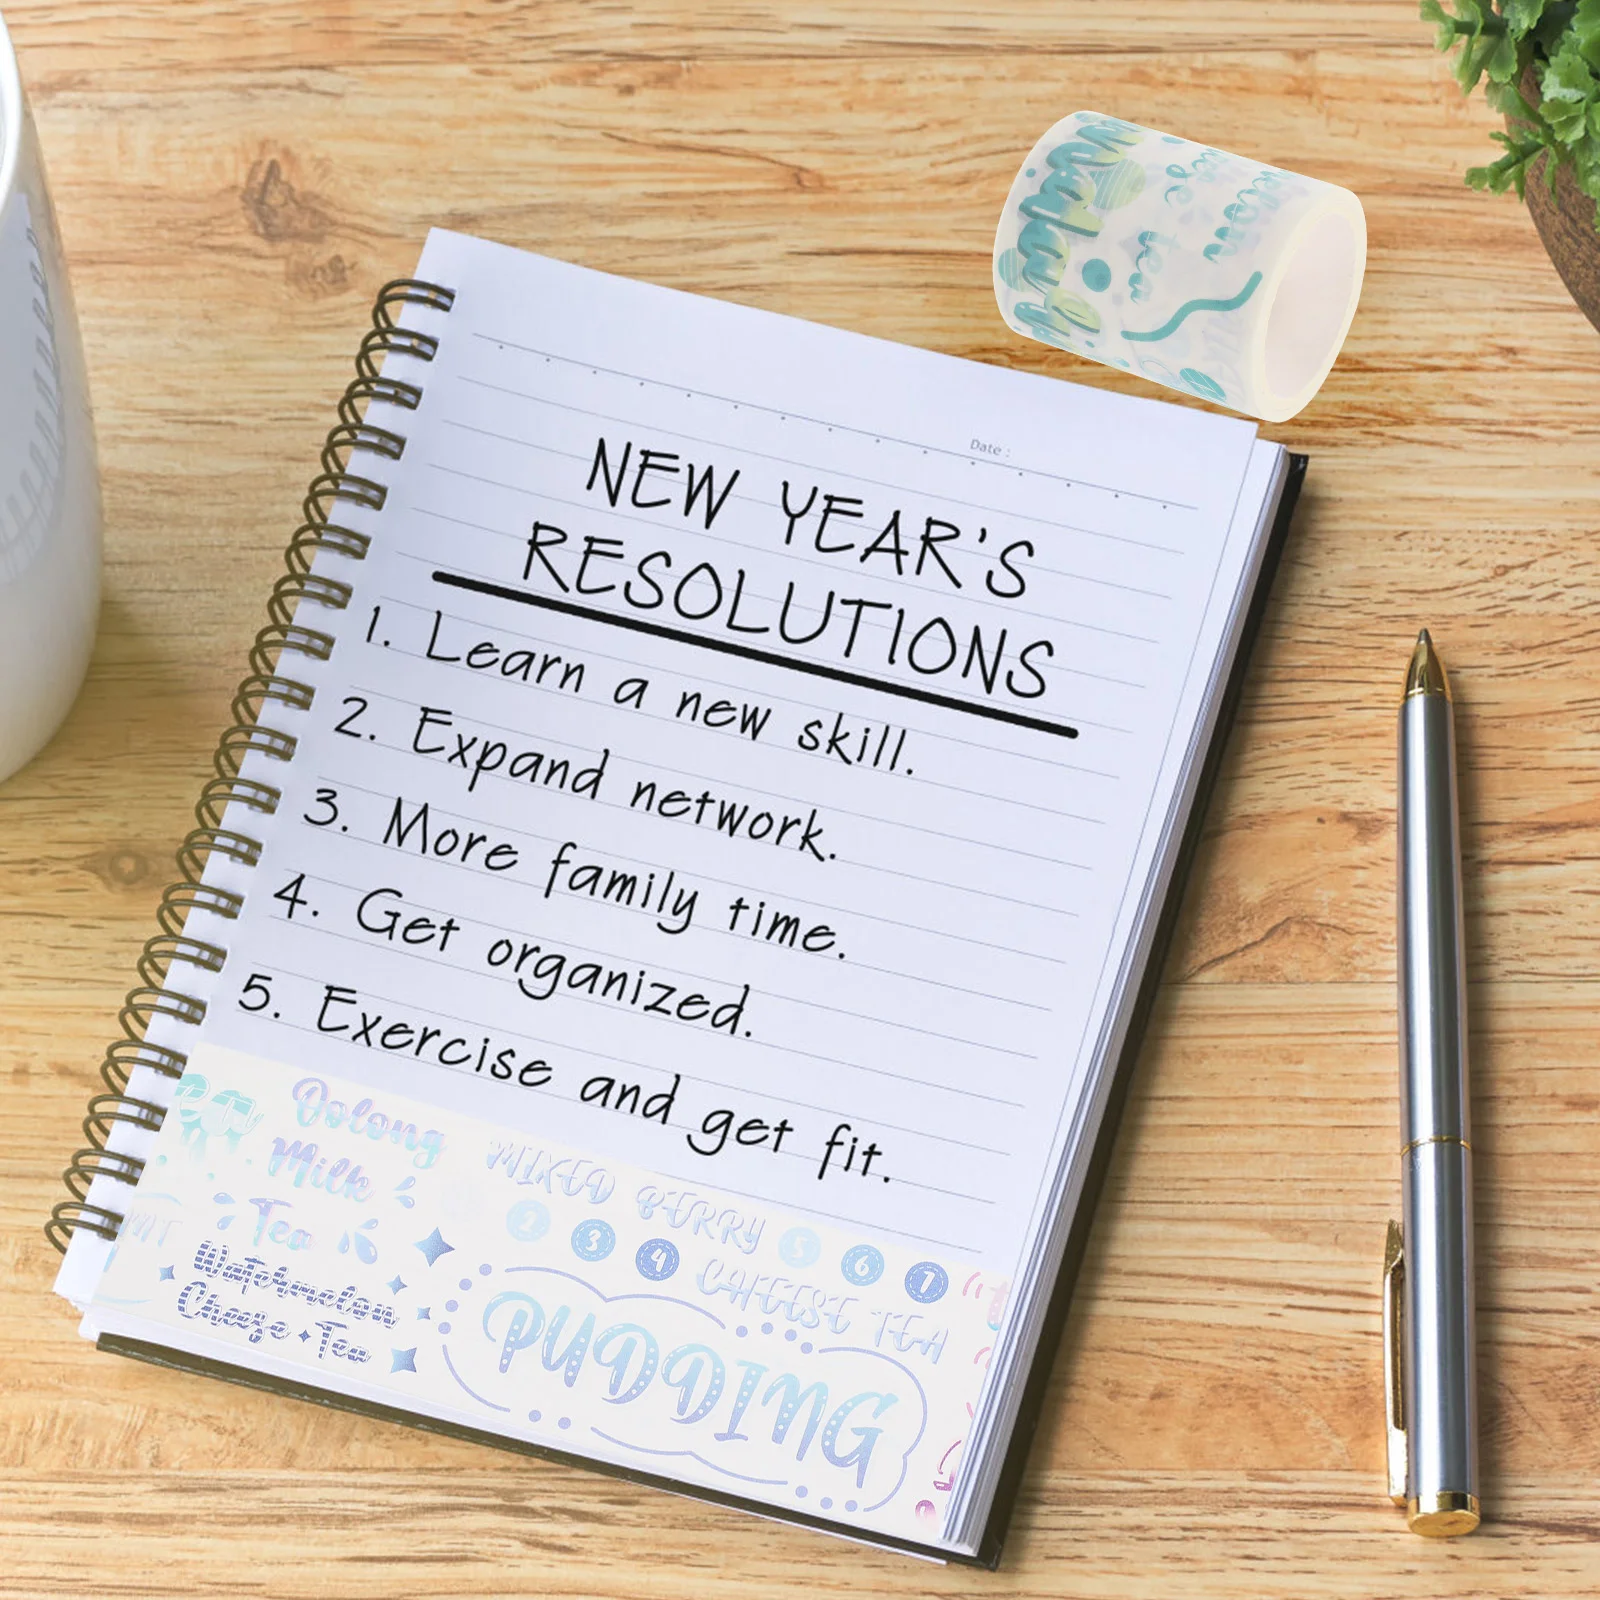 Date :
NEW YEAR'S
RESOLUTIONS
1. Learn a new skill.
2. Expand network.
3. More family time.
4. Get organized.
5. Exercise and get fit.
Oolong
Milk
Tea
Watermelon
Cheese Tea
MIXED BERRY
2 3 4 5 6 7
CHEESE TEA
PUDDING
tea